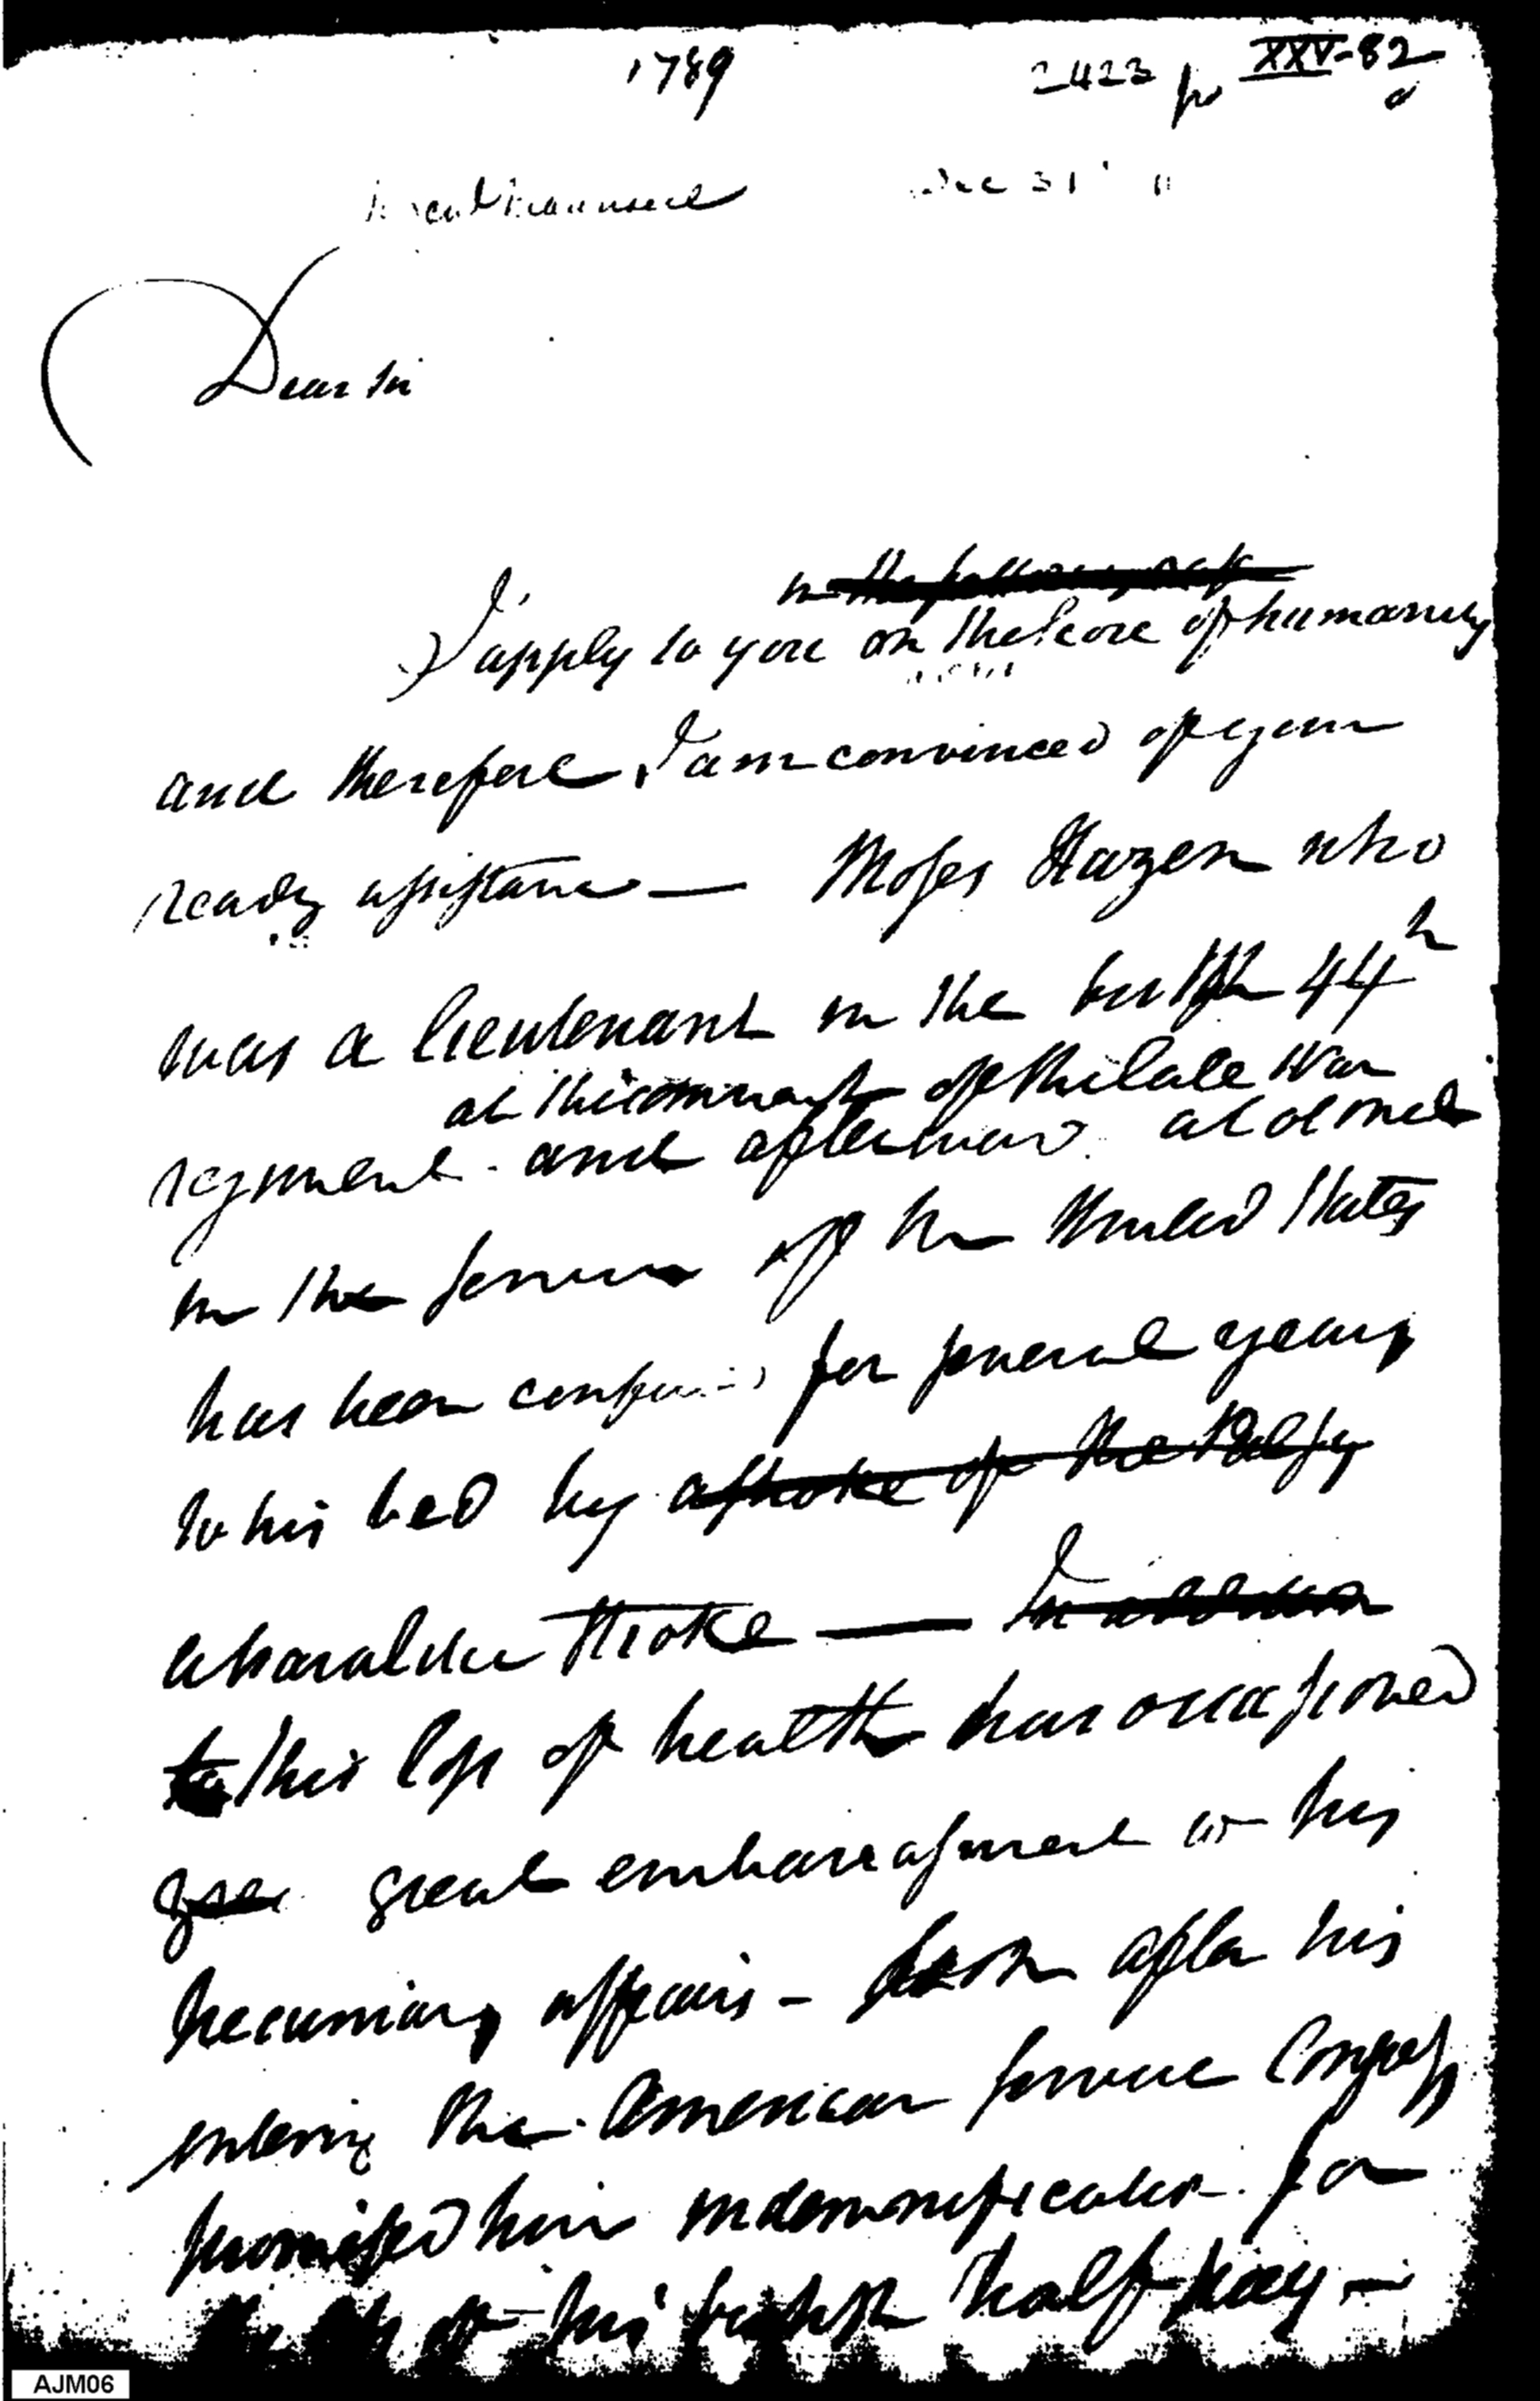 1789
2423
XXV-82
Dec 31
Dear Sir
in the following case
I apply to you on the score of humanity
and therefore I am convinced of your
ready assistance — Moses Hazen who
was a lieutenant in the british 44th
at the comment of the late War
regiment and afterward a Colonel
in the service of the United States
has been confined for several years
to his bed by a stroke of the Palsy
a paralitic stroke — In addition
to this loss of health has occasioned
grea great embarrassment in his
pecuniary affairs - soon after his
entering the American service Congress
promised him indemnification for
his british half-pay -
AJM06